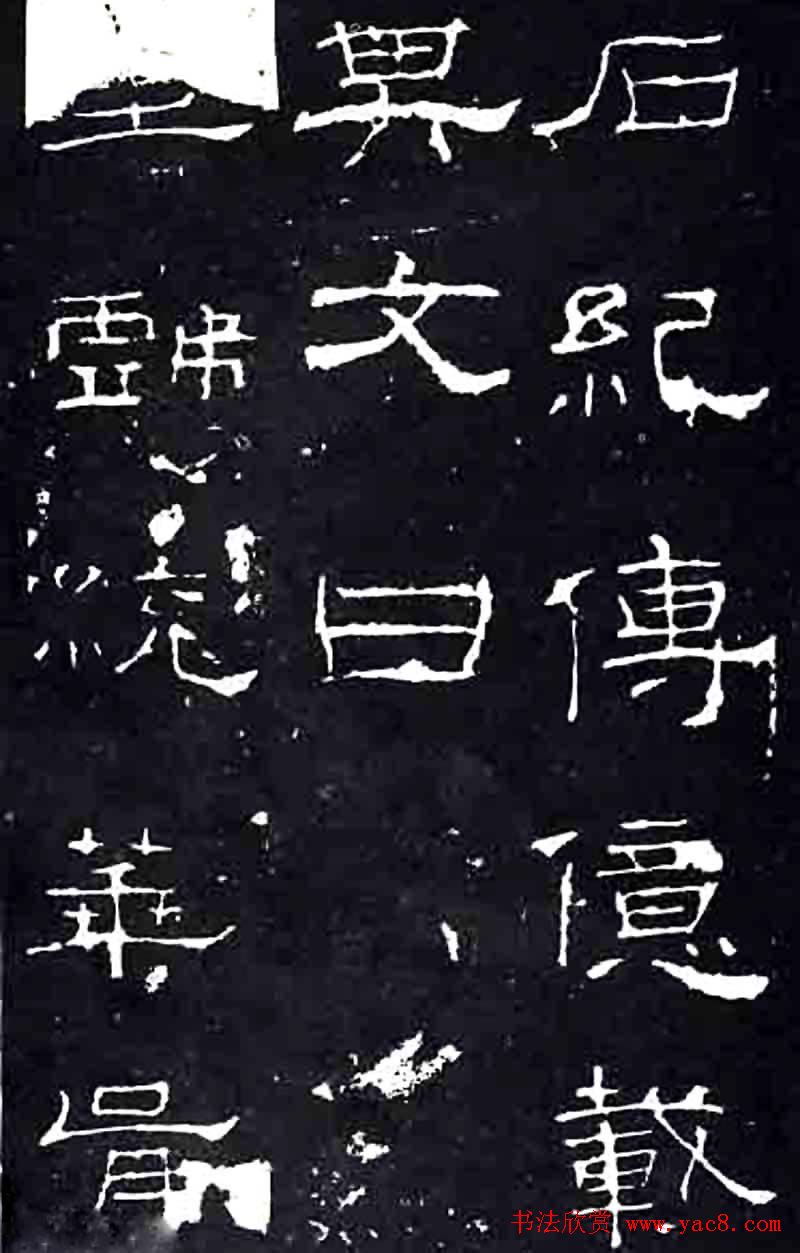 石紀傳億載
其文曰
皇戲統華胥
书法欣赏 www.yac8.com